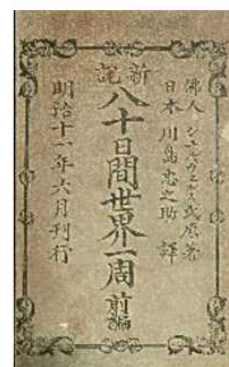 佛人 ジュールスウェルス氏原著
日本 川島忠之助 譯
新說
八十日間世界一周 前編
明治十一年六月刊行